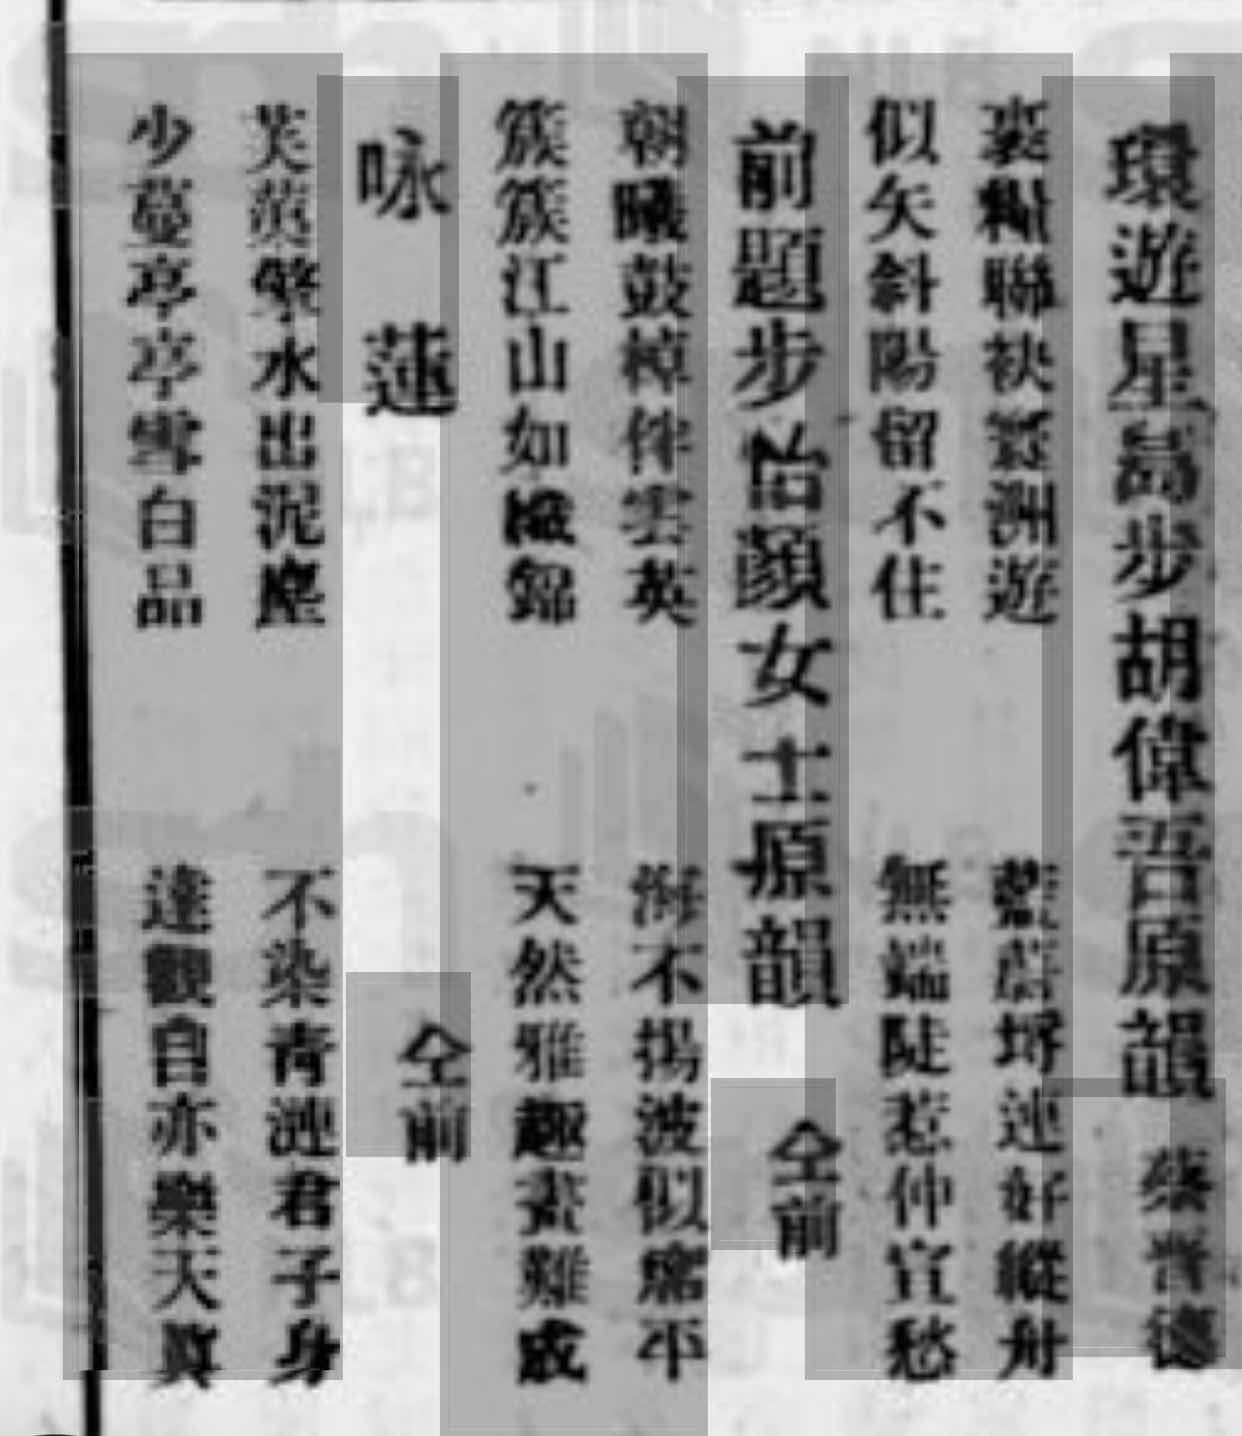 環遊星島步胡偉吾原韻 蔡晉德
裹糧聯袂寰洲遊 藍蔚埒連好縱舟
似矢斜陽留不住 無端陡惹仲宣愁
前題步怡顏女士原韻 仝前
朝曦鼓棹伴雲英 海不揚波似席平
簇簇江山如織錦 天然雅趣畫難成
咏蓮 仝前
芙蕖擎水出泥塵 不染青漣君子身
少蔓亭亭雪白品 達觀自亦樂天真